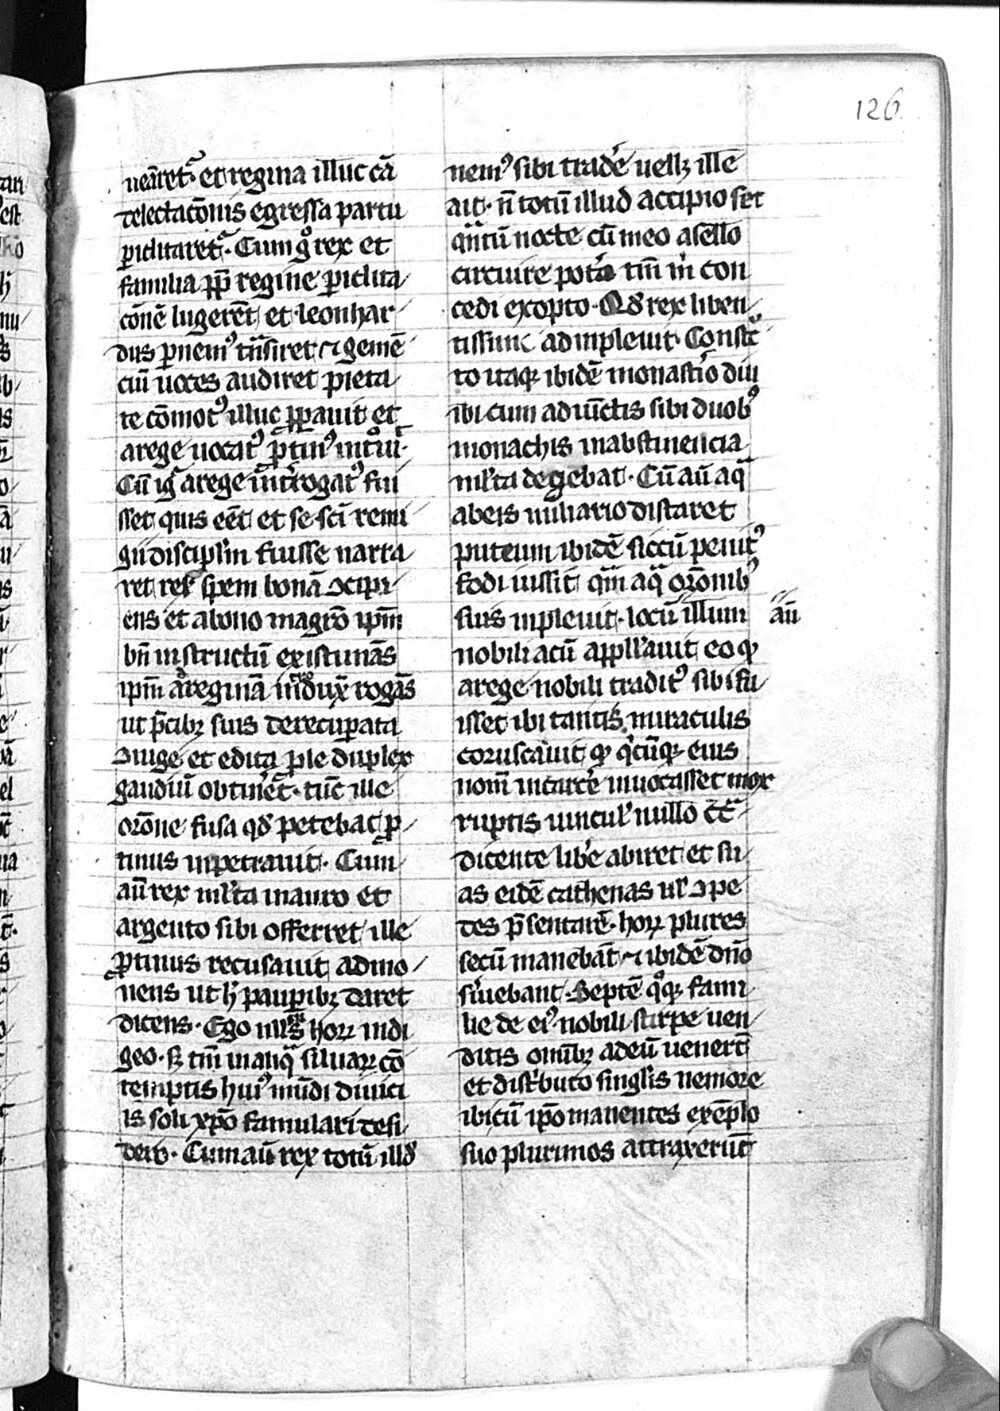 126
nearet᷑ · et regina illuc cā
delectacōnis egressa partu
ꝑiclitaret᷑ · Cum gͦ rex et
familia ꝓpͥ regine ꝑiclita
cōnē lugerēt et leonhar
dus ꝑ nemꝰ tͣnsiret ⁊ gemē
ciū uoces audiret pieta
te cōmotꝰ illuc ꝓꝑauit et
a rege uocatꝰ ꝓtinꝰ
Cū igͣ a rege int̄rogatꝰ fui
sset quis eēt et se sc̄i remi
gii discipl'm fuisse narra
ret rex spem bonā ↄcipi
ens et a bono magr̄o ip̄m
bn̄ instructū existimās
ip̄m ad reginā ītroduxͭ rogās
ut p̄cibꝫ suis de recuꝑata
ↄiuge et edita ꝓle duplex
gaudiū obtin̄et · tūc ille
orōne fusa qd̛ petebat ꝓ
tinus inpetrauit · Cum
aū rex ml'ta in auro et
argento sibi offerret ille
ꝓtinus recusauit admo
nens ut h̄ pauꝑibꝫ daret
dicens · Ego horꝝ indi
geo · sꝫ tm̄ in aliqͣ siluarꝝ cō
temptis huiꝰ mūdi diuici
is soli xp̄o famulari desi
dero · Cum aū rex totū illd̛
nemꝰ sibi tradē uellꝫ ille
ait · n̄ totū illud accipio set
qͣntū nocte cū meo asello
circuire potͦo tm̄ m̄ con
cedi exopto · Qd̛ rex liben
tissime adinpleuit · Const͛c
to itaqꝫ ibidē monast̛io diu
ibi cum adiūctis sibi duobꝰ
monachis in abstinencia
ml'ta degebat · Cū aū aqͣ
ab eis miliario distaret
puteum ibidē siccū penitꝰ
fodi iussit quē aqͣ orōnibꝰ
suis inpleuit · locū illum aū
nobiliacū appll'auit eo ꝙ
a rege nobili traditꝰ sibi fu
isset ibi tantis miraculis
coruscauit ꝙ qͥcūqꝫ eius
nom̄ in carc̄e inuocasset mox
ruptis uincul' nullo ↄtͣ
dicente libe abiret et su
as eidē cathenas ul' ↄpe
des p̄sentarē · horꝝ plures
secū manebāt ⁊ ibidē dn̄o
s̄uiebant · Septē qͦqꝫ fami
lie de eiꝰ nobili stirpe uen
ditis omībꝫ ad eū uenerūt
et dist̛buto singl'is nemore
ibi cū ip̄o manentes exēplo
suo plurimos attraxerūt